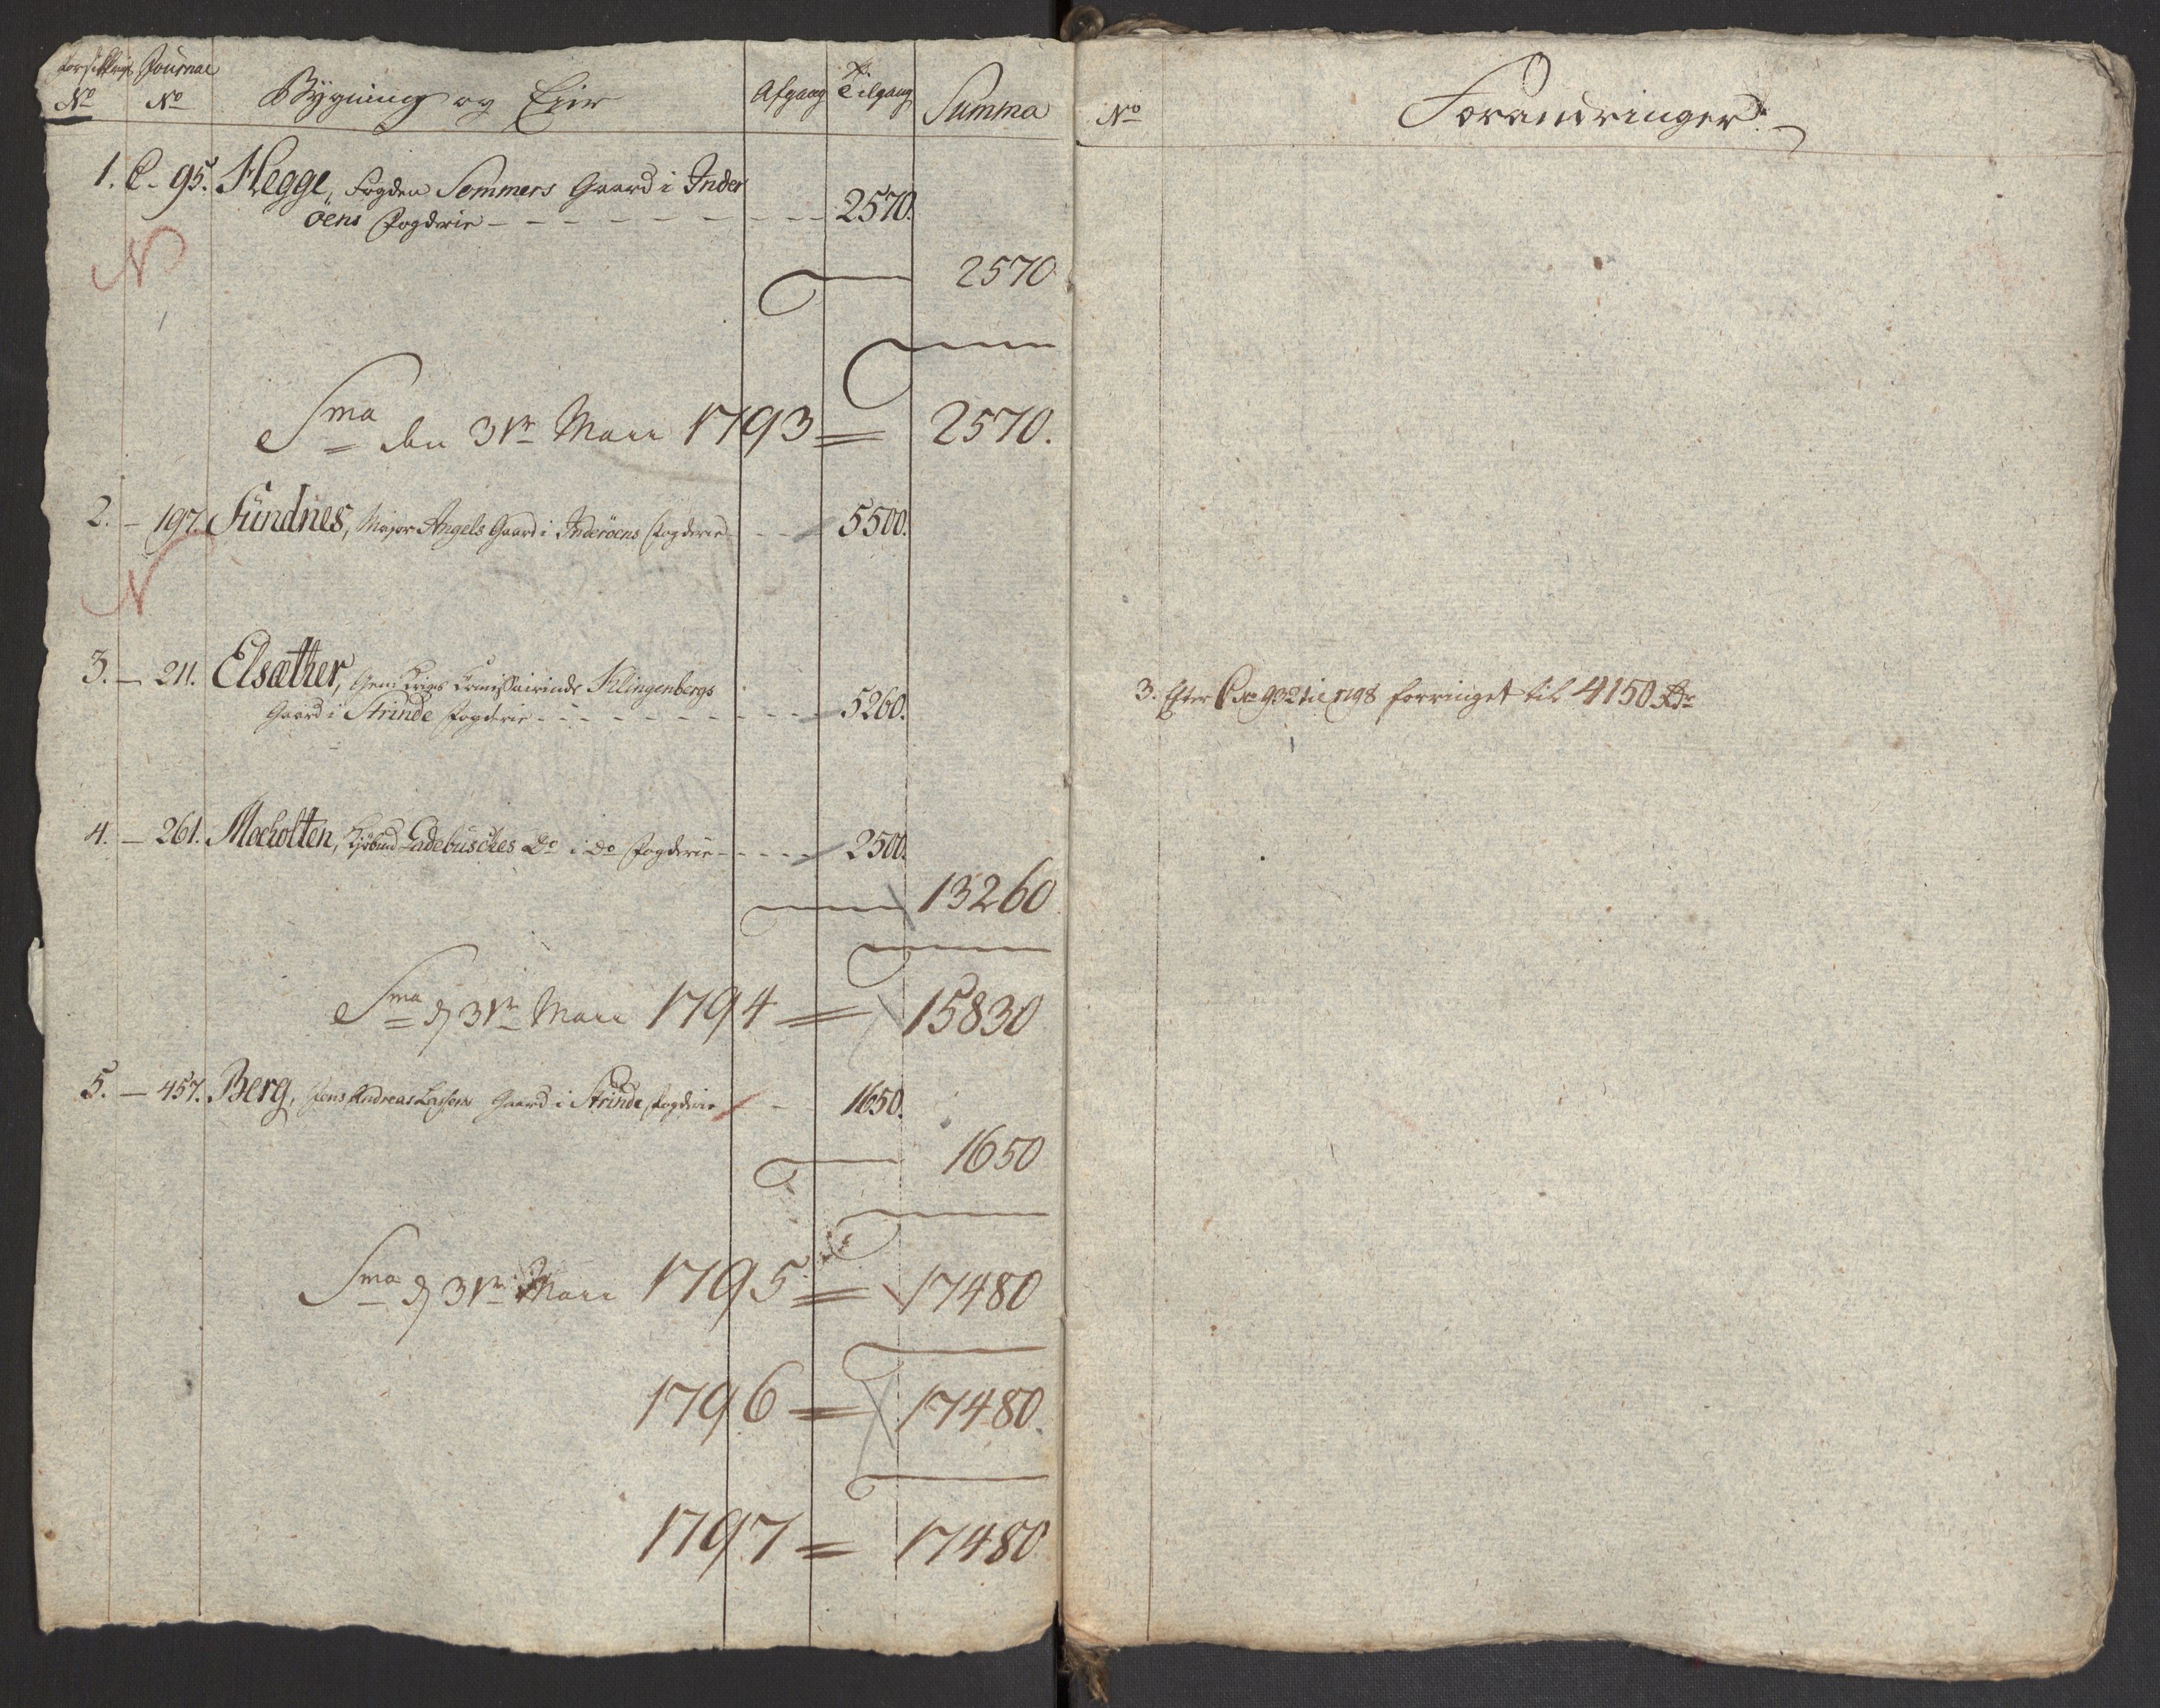 Forsikkrings Journal
No No Bÿgning og Eier Afgang Tilgang Summa
1. C. 95. Hegge, Fogden Sommers Gaard i Inder
öens Fogderie - - - - - - - - 2570.
2570
Sma den 31te Marti 1793 = 2570.
2. - 197. Sundnes, Major Angels Gaard i Inderöens Fogderie - - - 5500.
3. - 211. Elsæther, Gen: Krigs Commissairinde Klingenbergs
Gaard i Strinde Fogderie - - - - - - - - 5260.
4. - 261. Mocholten, Kjöbmd Ladebusches Do i Do Fogderie - - - - 2500.
13260
Sma d 31te Marti 1794 = 15830
5. - 457. Berg, Jens Andreas Lassens Gaard i Strinde Fogderie - - 1650.
1650
Sma d 31te Marti 1795 = 17480
1796 = 17480.
1797 = 17480
No Forandringer.
3. Efter C No 932 til 1798 forringet til 4150 Rdr